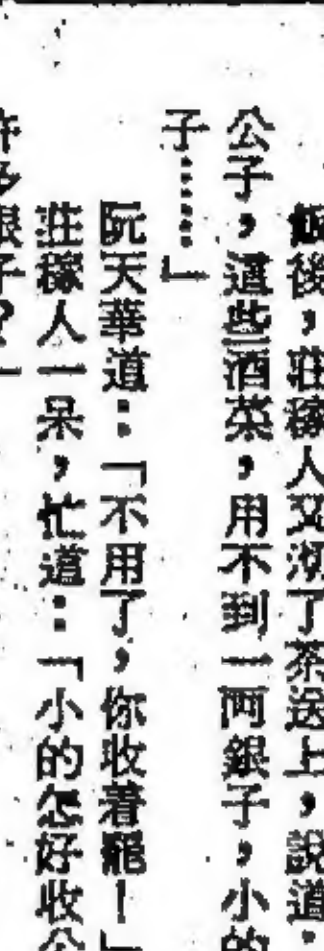 飯後，莊稼人又沏了茶送上，說道：
公子，這些酒菜，用不到一兩銀子，小的
子……」
阮天華道：「不用了，你收着罷！」
莊稼人一呆，忙道：「小的怎好收公
許多銀子？」